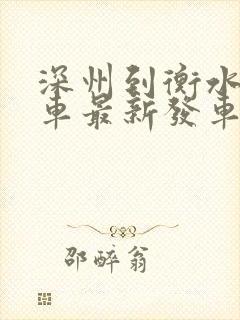 深州到衡水
車最新發車
邵醉翁